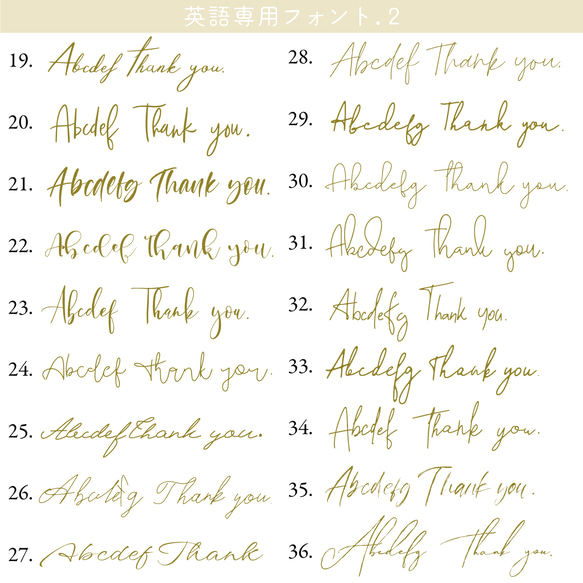 英語専用フォント.2
19. Abcdef Thank you.
20. Abcdef Thank you.
21. Abcdefg Thank you.
22. Abcdef Thank you.
23. Abcdef Thank you.
24. Abcdef Thank you.
25. Abcdef Thank you.
26. Abcdefg Thank you
27. Abcdef Thank
28. Abcdef Thank you.
29. Abcdefg Thank you.
30. Abcdefg Thank you.
31. Abcdefg Thank you.
32. Abcdefg Thank you.
33. Abcdefg Thank you.
34. Abcdef Thank you.
35. Abcdefg Thank you.
36. Abcdefg Thank you.